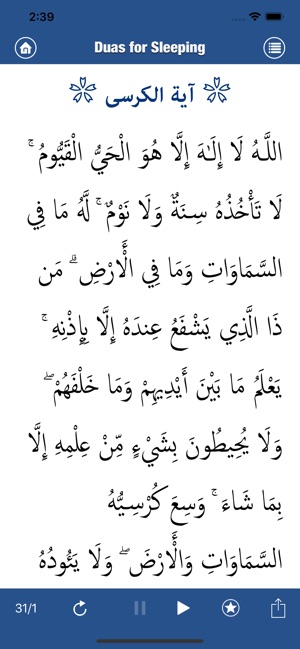 2:39
Duas for Sleeping
آية الكرسى
اللَّهُ لَا إِلَٰهَ إِلَّا هُوَ الْحَيُّ الْقَيُّومُ ۚ
لَا تَأْخُذُهُ سِنَةٌ وَلَا نَوْمٌ ۚ لَّهُ مَا فِي
السَّمَاوَاتِ وَمَا فِي الْأَرْضِ ۗ مَن
ذَا الَّذِي يَشْفَعُ عِندَهُ إِلَّا بِإِذْنِهِ ۚ
يَعْلَمُ مَا بَيْنَ أَيْدِيهِمْ وَمَا خَلْفَهُمْ ۖ
وَلَا يُحِيطُونَ بِشَيْءٍ مِّنْ عِلْمِهِ إِلَّا
بِمَا شَاءَ ۚ وَسِعَ كُرْسِيُّهُ
السَّمَاوَاتِ وَالْأَرْضَ ۖ وَلَا يَئُودُهُ
31/1